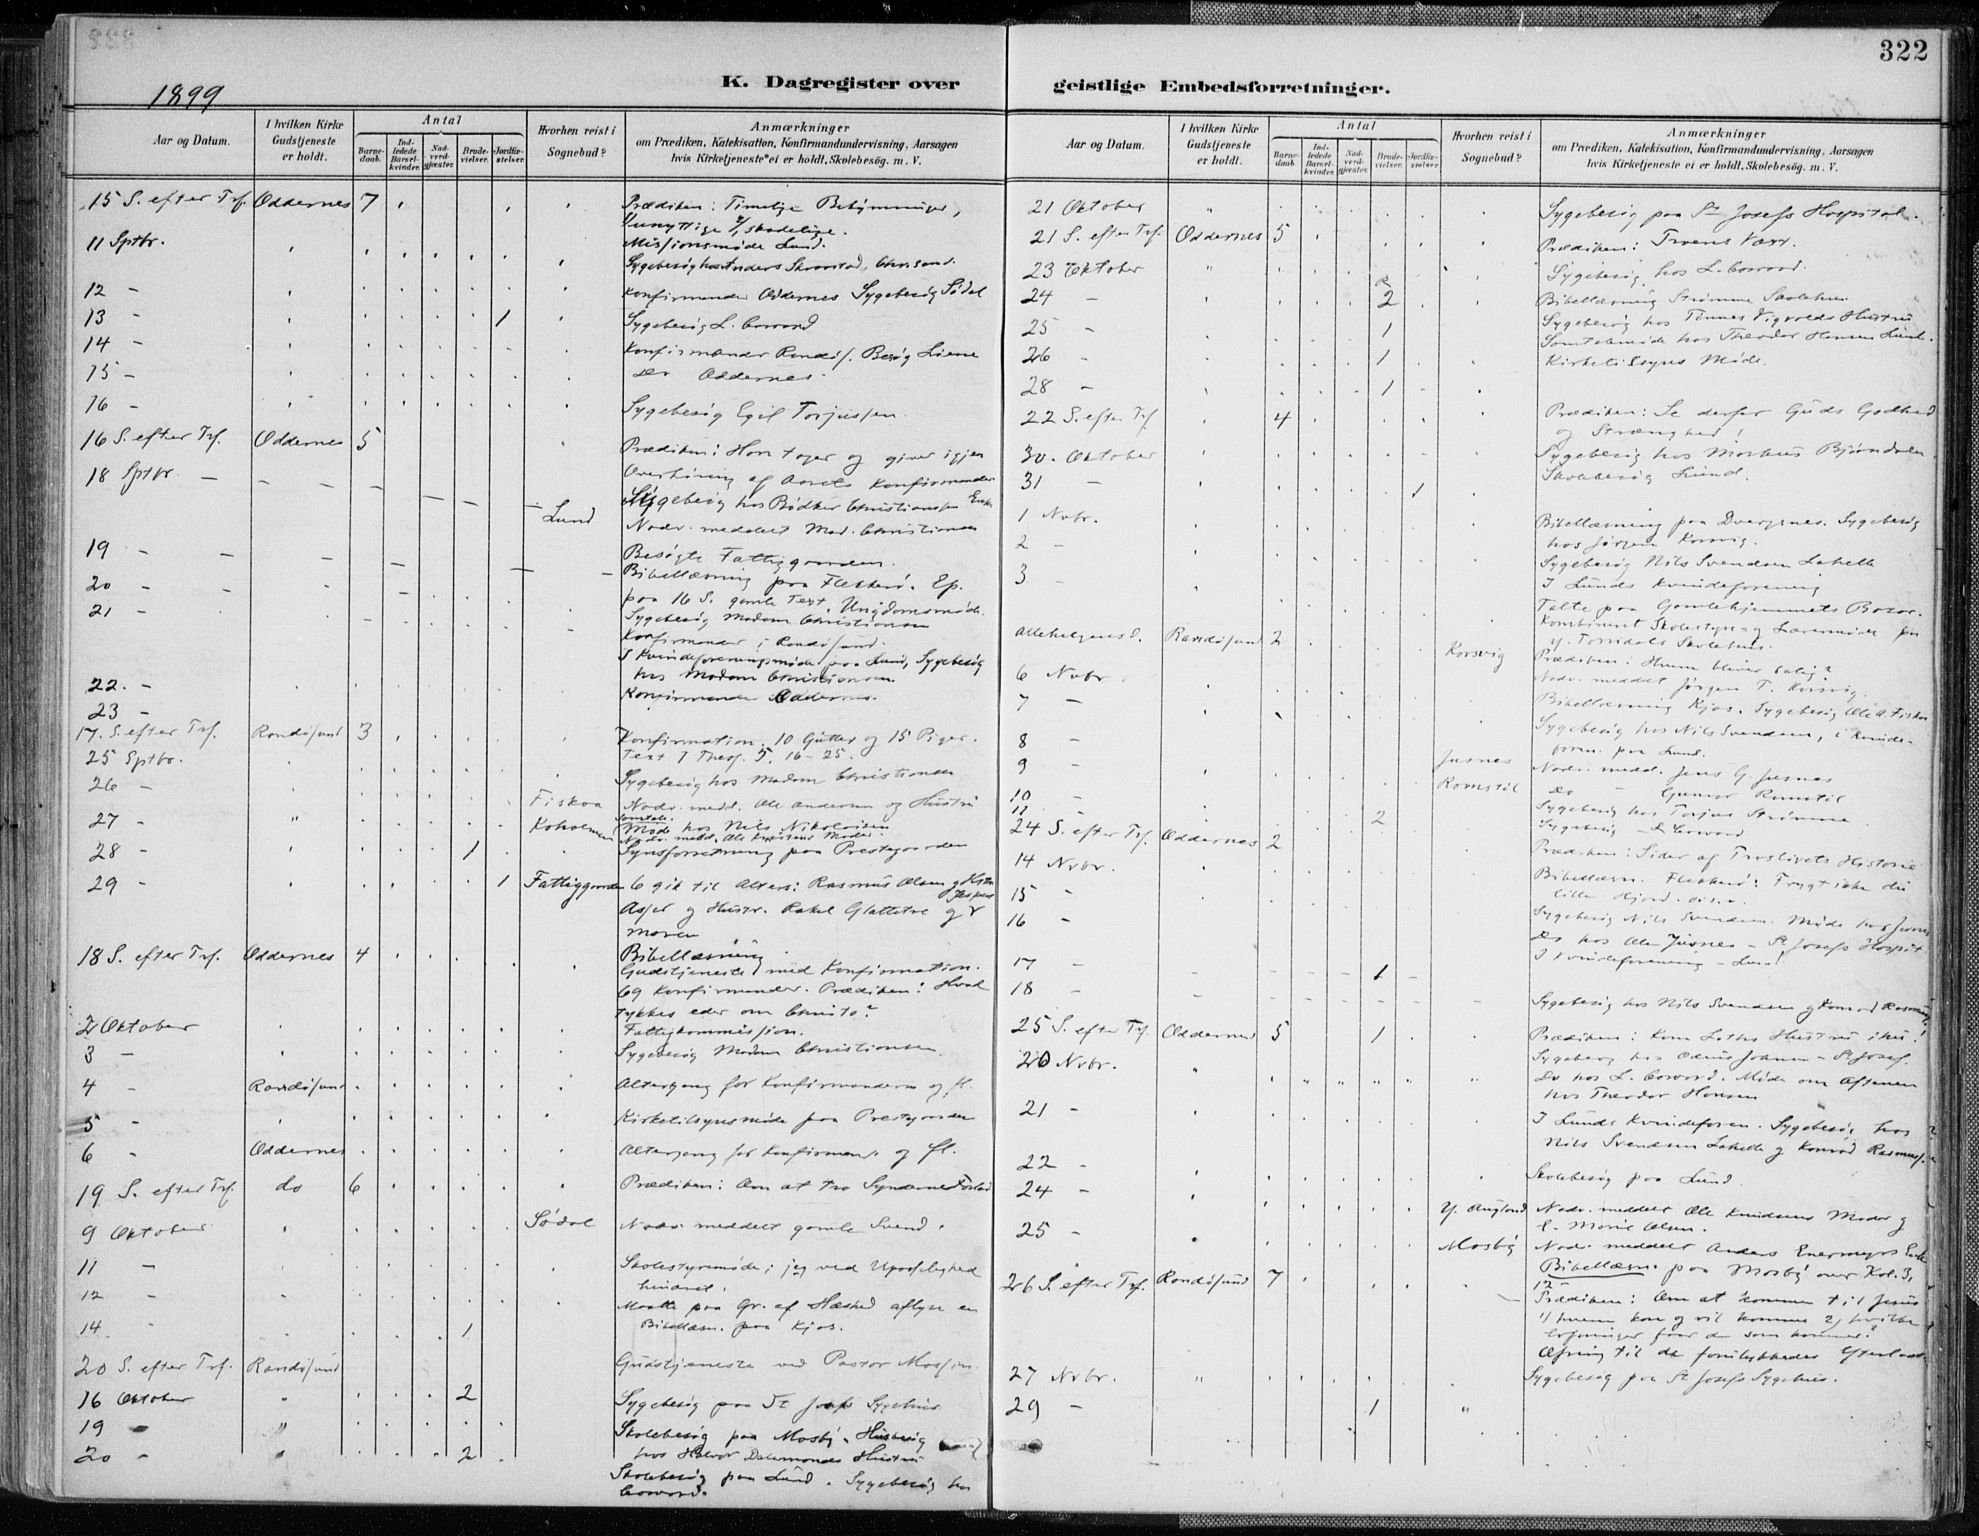 322
K. Dagregister over geistlige Embedsforretninger.
1899
Aar og Datum.
I hvilken Kirke Gudstjeneste er holdt.
Antal
Barnedaab.
Indledede Barselkvinder.
Nadverdgjæster.
Brudevielser.
Jordfæstelser.
Hvorhen reist i Sognebud?
Anmærkninger
om Prædiken, Katekisation, Konfirmandundervisning, Aarsagen
hvis Kirketjeneste ei er holdt, Skolebesög m. V.
15 S. efter Trf. Oddernes 7 Prædiken: Timelige Bekymringer,
1/ unyttige 2/ skadelige.
11 Sptbr. Missionsmøde Lund.
Sygebesøg hos Anders
12 - Konfirmander Oddernes Sygebesøg Sødal
13 - 1 Sygebesøg L.
14 - Konfirmander Randøs. Besøg
15 - Do Oddernes.
16 - Sygebesøg Egil Torjussen.
16 S. efter Trf. Oddernes 5 Prædiken: Herren tager og giver igjen
18 Sptbr. Overhøring af Aarets Konfirmander
Sygebesøg hos Bødker Christiansen Enke
Lund Nadv. meddelt Mad. Christiansen
19 - Besøgte Fattiggaarden.
20 - Bibellæsning paa Flekkerø. Ep.
paa 16 S. gamle Text. Ungdomsmøde.
21 - Sygebesøg Madam Christiansen
Konfirmander i Randøsund.
I Kvindeforeningsmøde paa Lund, Sygebesøg
22. - hos Madam Christiansen
23 - Konfirmander Oddernes.
17. S. efter Trf. Randøsund 3 Konfirmation. 10 Gutter og 15 Piger.
25 Sptbr. Text I Thess. 5, 16-25.
26 - Sygebesøg hos Madam Christiansen
Fiskaa Nadv. medd. Ole Andersen og Hustru
27 - " Koholmen Samtale Møde hos Nils Nikolaisen
Nadv. medd. Ole Knutsens Moder
28 - 1 Synsforretning paa Prestegaarden
29 - 1 Fattiggaarden 6 gik til Alters: Rasmus Olsen og Hstr
og Hustr. Rakel
18 S. efter Trf. Oddernes 4 Bibellæsning
Gudstjeneste med Konfirmation.
69 Konfirmander. Prædiken: Hvad
tykkes eder om Christo?
2 Oktober Fattigkommission.
3 - Sygebesøg Madam Christiansen.
4 - Randøsund Altergang for Konfirmanderne og fl.
5 - Kirketilsynsmøde paa Prestgaarden
6 - Oddernes Altergang for Konfirmand. og fl.
19 S. efter Trf. do 6 Prædiken: Om at tro Syndernes Forlad
9 Oktober Sødal Nadv. meddelt gamle Svend.
11 - Skolestyremøde; jeg ved Upasselighed
hindret.
12 - Maatte paa Gr. af Hæshed aflyse en
14 1 Bibellæsn. paa Kjos.
20 S. efter Trf. Randøsund Gudstjeneste ved Pastor
16 Oktober " 2 Sygebesøg paa St Josefs Sygehus
19 - " Skolebesøg paa Mosby. Husbesøg
20 - 2 hos Halvor Hustru
Skolebesøg paa Lund. Sygebesøg hos
Aar og Datum.
I hvilken Kirke Gudstjeneste er holdt.
Antal
Barnedaab.
Indledede Barselkvinder.
Nadverdgjæster.
Brudevielser.
Jordfæstelser.
Hvorhen reist i Sognebud?
Anmærkninger
om Prædiken, Katekisation, Konfirmandundervisning, Aarsagen
hvis Kirketjeneste ei er holdt, Skolebesög m. V.
21 Oktober " Sygebesøg paa St Josefs Hospital.
21 S. efter Trf. Oddernes 5 Prædiken: Troens Væxt.
23 Oktober " Sygebesøg hos L.
24 - 2 Bibellæsning Strømme Skolehus.
25 - 1 Sygebesøg hos Tønnes Vigvolds Hustru
Samtalemøde hos Theodor Hansen Lund.
26 - 1 Kirketilsyns Møde.
28 - 1
22 S. efter Trf. 4 Prædiken: Se derfor Guds Godhed
og Strænghed!
30. Oktober Sygebesøg hos
31 - 1 Skolebesøg Lund.
1 Nvbr. Bibellæsning paa Dvergsnes. Sygebesøg
2 - hos Jørgen Korsvig.
3 - Sygebesøg Nils Svendsen
I Lunds Kvindeforening
Talte paa Gamlehjemmets Bazar.
Kombineret Skolestyre- og Lærermøde paa
Allehelgensd. Randøsund 2 y. Torridals Skolehus.
Korsvig Prædiken: Hvem bliver salig?
6 Nvbr Nadv. meddelt Jørgen T. Korsvig.
7 - Bibellæsning Kjos. Sygebesøg Ole A. Fiskaa
8 - Sygebesøg hos Nils Svendsen, i Kvinde-
foren. paa Lund.
9 - Jusnes Nadv. medd. Jens G. Jusnes
10 - Romstøl Do - Gunnar Romstøl
11 - 2 Sygebesøg hos Torjus Strømme
24 S. efter Trf. Oddernes 2 Sygebesøg - L
14 Nvbr. Prædiken: Sider af Troslivets Historie
15 - Bibellæsn. Flekkerø: Frygt ikke du
lille Hjord. o.s.v.
16 - Sygebesøg Nils Svendsen. Møde hos
Do hos Ole Jusnes - St Josefs Hospit
17 - 1 I Kvindeforening - Lund
18 - Sygebesøg hos Nils Svendsen og Konrad Rasmuss.
25 S. efter Trf. Oddernes 5 1 Prædiken: Kom Loths Hustru ihu!
20 Nvbr. " Sygebesøg hos - St Josef.
Do hos L. Møde om Aftenen
hos Theodor Hansen
21 - I Lunds Kvindeforen. Sygebesøg hos
Nils Svendsen og Konrad Rasmuss.
22 - Skolebesøg paa Lund
24 - Y. Augland Nadv. meddelt Ole Knudsens Moder og
Marie Olsen.
25 - Mosby Nadv. meddelt Anders Enke
Bibellæsn. paa Mosby over Kol. 3,
26 S. efter Trf. Randøsund 7 12 - Prædiken: Om at komme til Jesus
1/ hvem kan og vil komme 2/ hvilke
faar de som kommer?
til de forulykkedes Efterladte
27 Nvbr. " Sygebesøg paa St Josefs Sygehus.
29 - 1 "